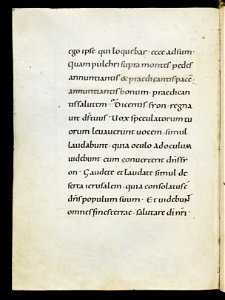 ego ipse qui loquebar · ecce adsum ·
quam pulchri supra montes pedes
annuntiantis & praedicantis pacē
annuntiantis bonum · praedican
tis salutem · Dicentis sion · regna
uit ds tuus · Uox speculatorum tu
orum leuauerunt uocem · simul
laudabunt · quia oculo ad oculum
uidebunt cum conuerterit dn̄s
sion · Gaudete et laudate simul de
serta ierusalem · quia consolatus ē
dn̄s populum suum · Et uidebunt
omnes fines terrae · salutare di n̄ri ·